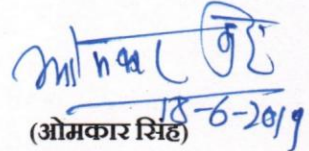 ओमकार सिंह
18-6-2019
(ओमकार सिंह)